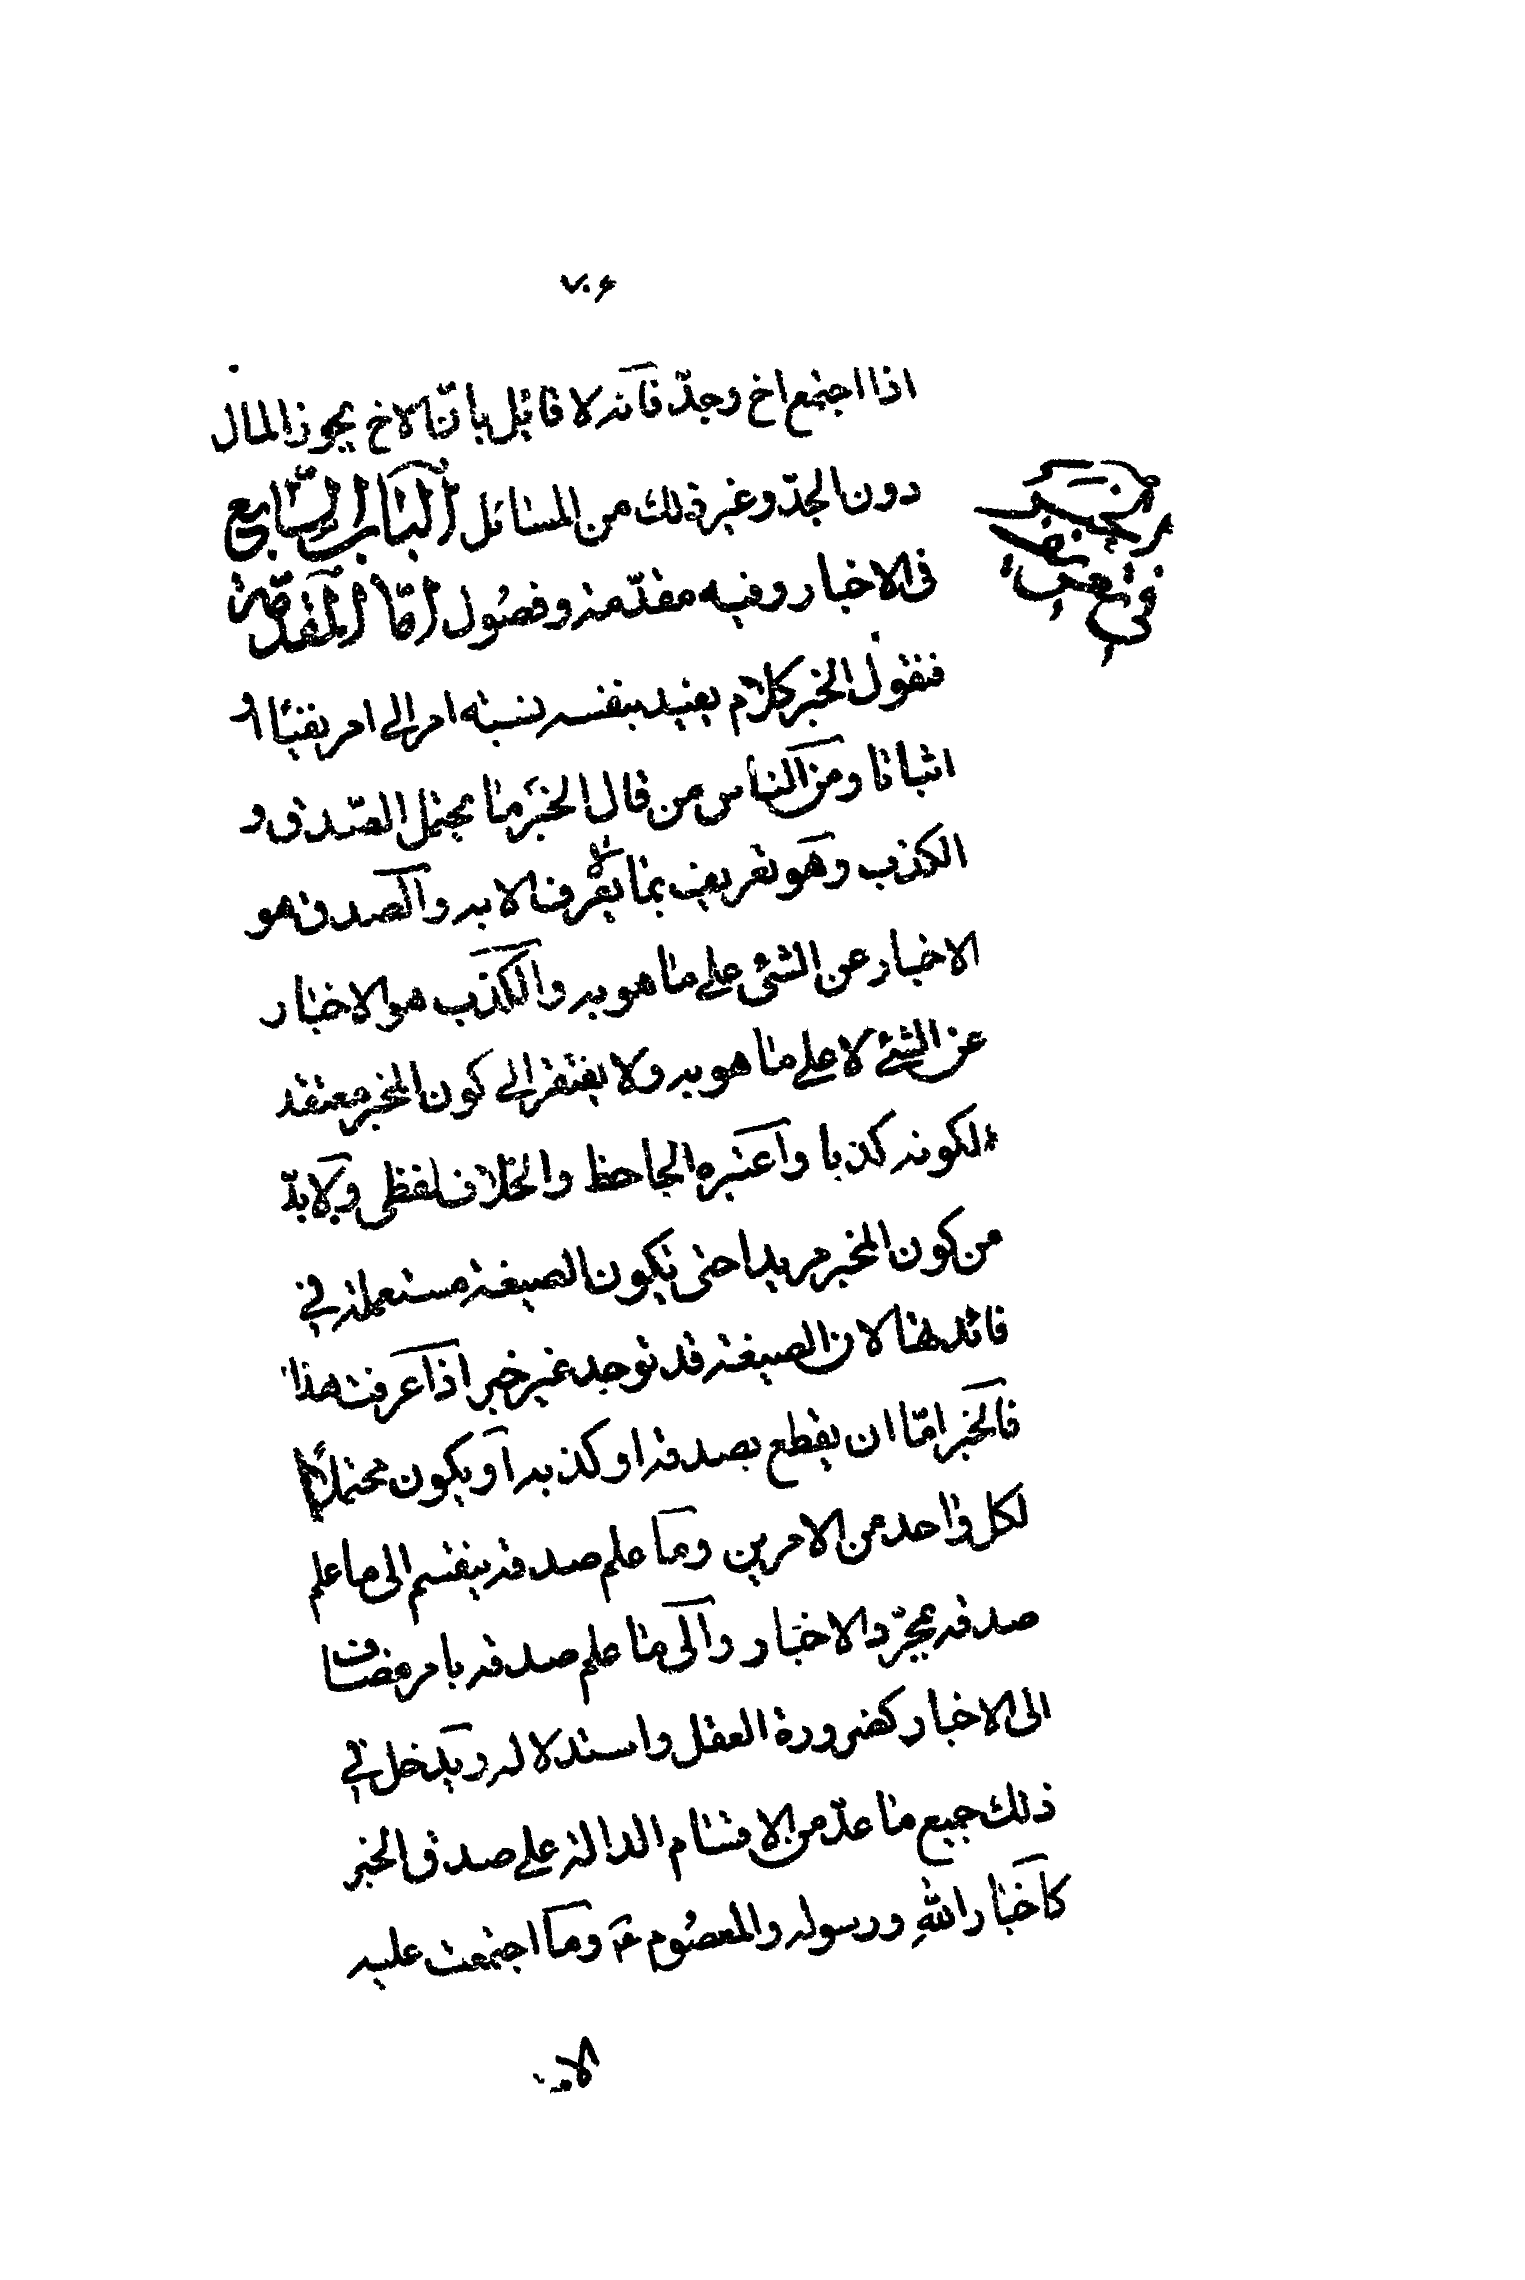 ٧٠۶
اذا اجتمع اخ وجدّ فانه لا قائل بانّ الاخ يحوز المال
دون الجدّ وغير ذلك من المسائل الباب السّابع
فى الاخبار وفيه مقدّمة وفصول امّا المقدّمة
فنقول الخبر كلام يفيد بنفسه نسبة امر الى امر نفيًا او
اثباتا ومن الناس من قال الخبر ما يحتمل الصّدق و
الكذب وهو تعريف بما لا يعرف الا به والصدق هو
الاخبار عن الشئ على ما هو به والكذب هو الاخبار
عن الشئ لا على ما هو به ولا يفتقر الى كون المخبر معتقد
لكونه كذبا واعتبره الجاحظ والخلاف لفظى ولابدّ
من كون المخبر مريدا حتى تكون الصيغة مستعملة في
فائدتها لان الصيغة قد توجد غير خبر اذا عرفت هذا
فالخبر امّا ان يقطع بصدقه او كذبه او يكون محتملًا
لكل واحد من الامرين وما علم صدقه ينقسم الى ما علم
صدقه بمجرّد الاخبار والى ما علم صدقه بامر مضاف
الى الاخبار كضرورة العقل واستدلاله ويدخل في
ذلك جميع ما عدّ من الاقسام الدالة على صدق الخبر
كاخبار الله ورسوله والمعصوم عم وما اجتمعت عليه
فى تعريف الخبر
الامة